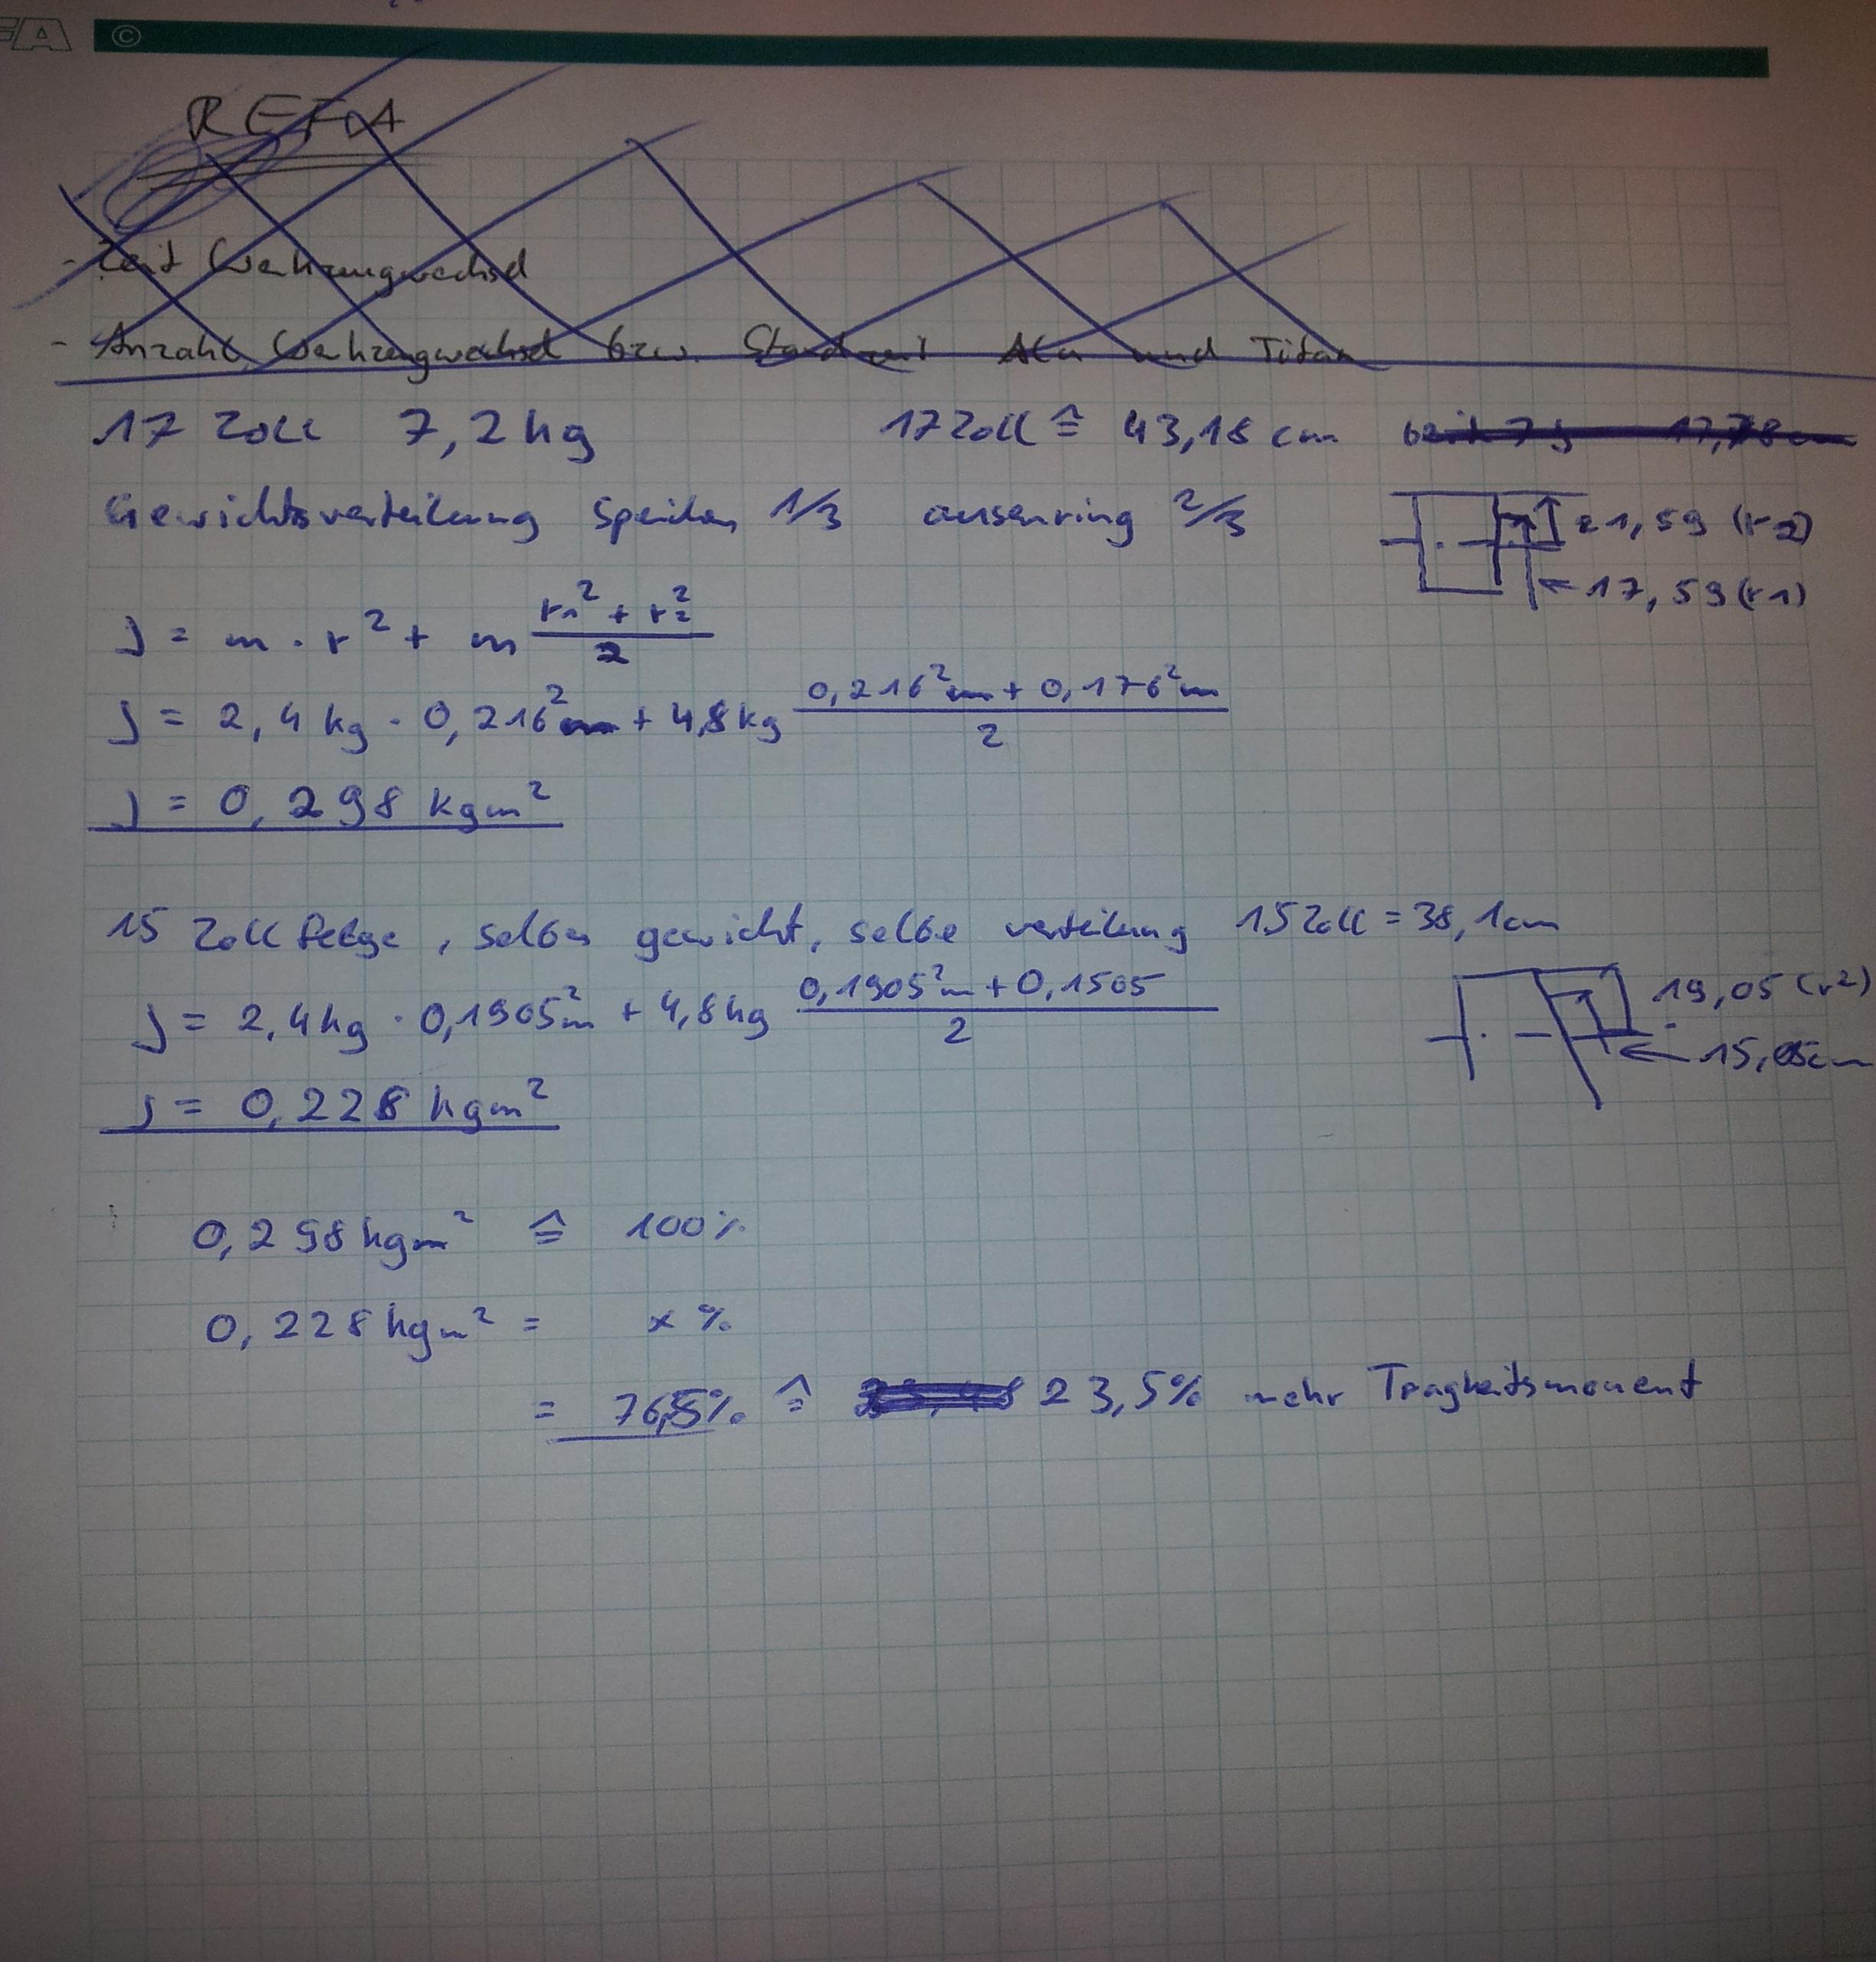 FA ©
REFA
- Zeit Werkzeugwechsel
- Anzahl Werkzeugwechsel bzw. Standzeit Alu und Titan
17 Zoll 7,2 kg 17 Zoll ≙ 43,18 cm
Gewichtsverteilung Speichen 1/3 ausenring 2/3
21,59 (r2)
17,59 (r1)
J = m · r² + m (r1² + r2²)/2
J = 2,4 kg · 0,216² m + 4,8 kg (0,216² m + 0,176² m)/2
J = 0,298 kgm²
15 Zoll Felge, selbes gewicht, selbe verteilung 15 Zoll = 38,1 cm
19,05 (r2)
15,05 cm
J = 2,4 kg · 0,1905² m + 4,8 kg (0,1905² m + 0,1505)/2
J = 0,228 kgm²
0,298 kgm² ≙ 100 %
0,228 kgm² = x %
= 76,5 % ≙ 23,5 % mehr Tragheitsmoment